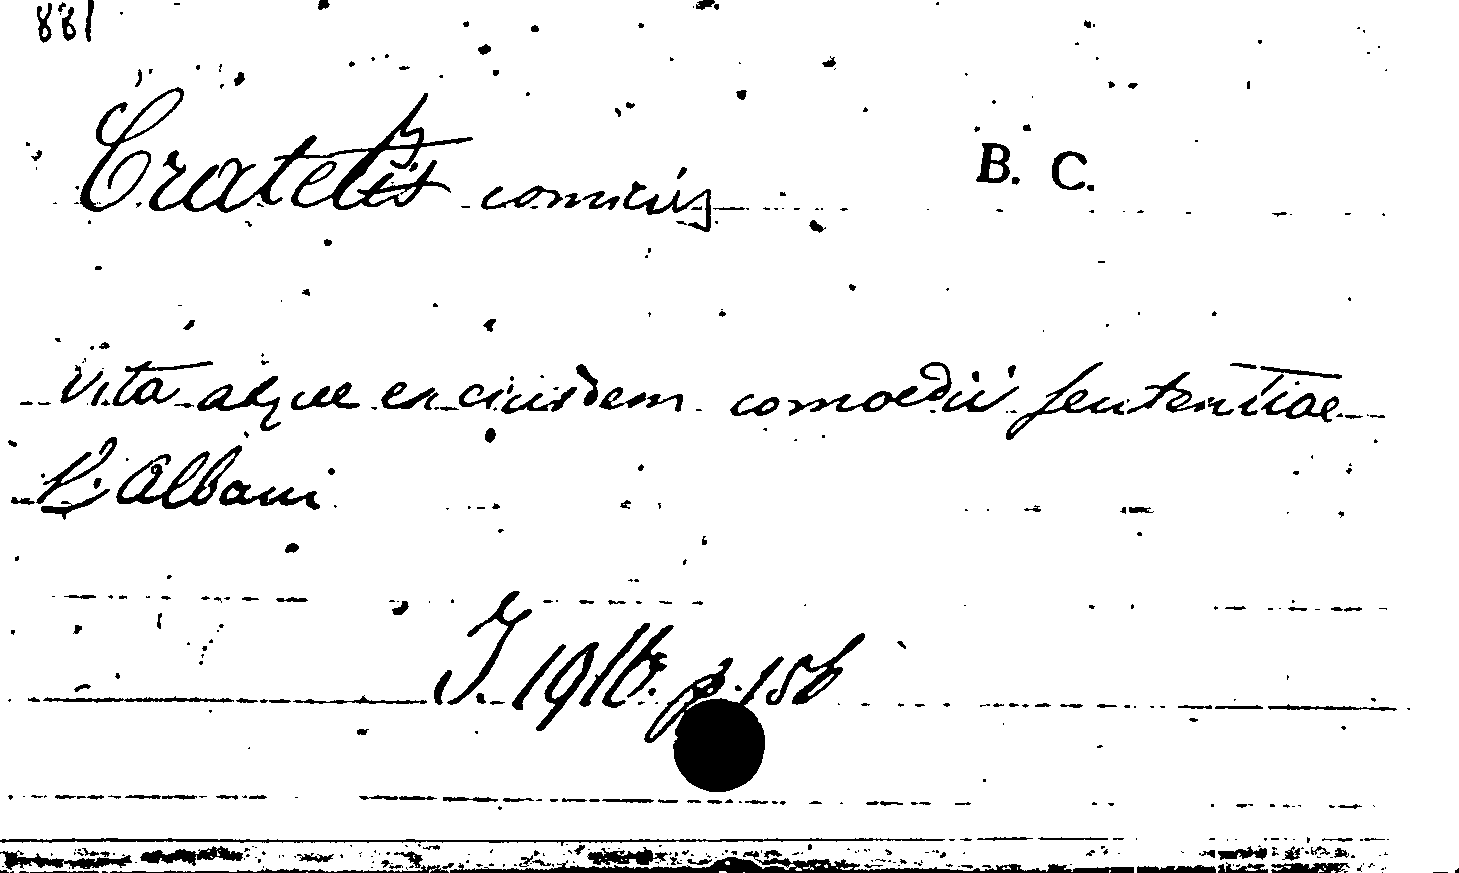 881
Crates comicus
B. C.
Vita atque ex eiusdem comoediis sententiae
V. Albani
I. 1916. p. 156